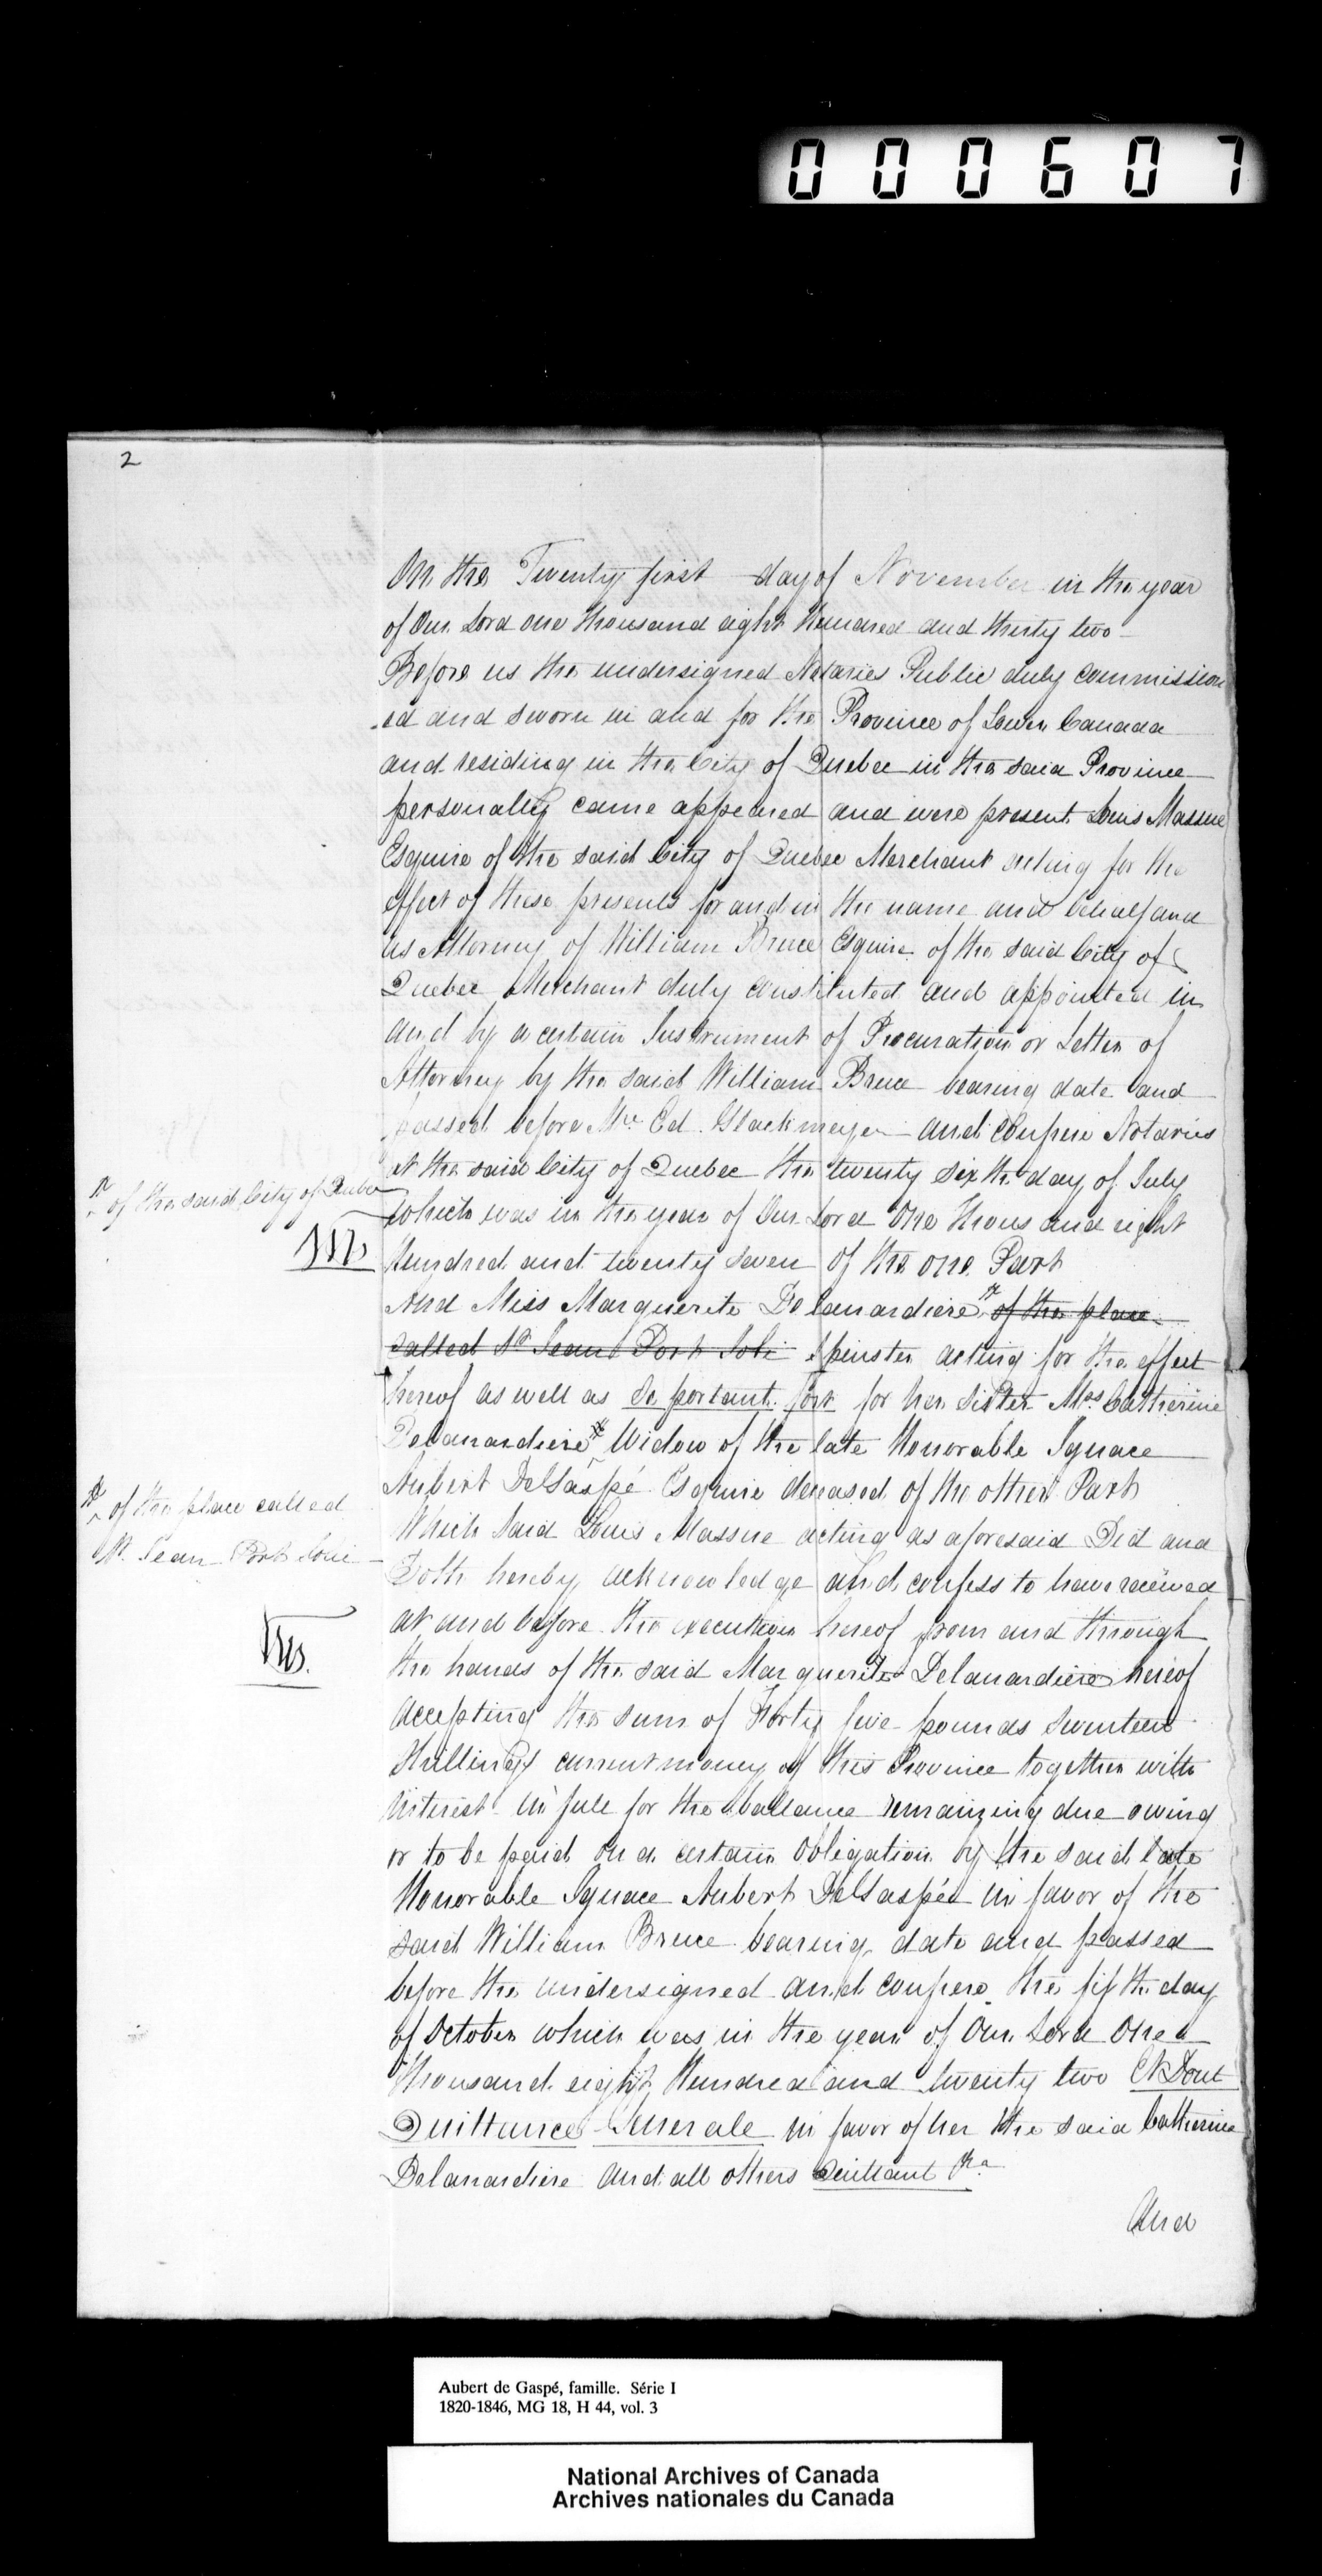 000607
2
On the Twenty first day of November in the year
of Our Lord one thousand eight hundred and thirty two
Before us the undersigned Notaries Public duly commission
-ed and sworn in and for the Province of Lower Canada
and residing in the City of Quebec in the said Province
personally came appeared and were present Louis Massue
Esquire of the said City of Quebec Merchant acting for the
effect of these presents for and in the name and behalf and
as Attorney of William Bruce Esquire of the said City of
Quebec Merchant duly constituted and appointed in
and by a certain Instrument of Procuration or Letter of
Attorney by the said William Bruce bearing date and
passed before Mr. Ed. Glackmeyer and Confrere Notaries
at the said City of Quebec the twenty sixth day of July
of the said City of Quebec
which was in the year of Our Lord One thousand eight
hundred and twenty seven of the one Part
And Miss Marguerite Delanardiere of the place
called St. Jean Port Joli Spinster acting for the effect
hereof as well as se portant fort for her Sister Mrs. Catherine
Delanardiere Widow of the late Honorable Ignace
Aubert DeGaspé Esquire deceased of the other Part
of the place called
St. Jean Port Jolie
Which Said Louis Massue acting as aforesaid Did and
Doth hereby acknowledge and confess to have received
at and before the execution hereof from and through
the hands of the said Marguerite Delanardiere hereof
accepting the sum of Forty five pounds seventeen
Shillings current money of this Province together with
interest in full for the ballance remaining due owing
or to be paid on a certain obligation by the said late
Honorable Ignace Aubert DeGaspée in favor of the
said William Bruce bearing date and passed
before the undersigned and confrere the fifth day
of October which was in the year of Our Lord One
thousand eight Hundred and twenty two Et Dont
Quittance Generale in favor of her the said Catherine
Delanardiere and all others
And
Aubert de Gaspé, famille. Série I
1820-1846, MG 18, H 44, vol. 3
National Archives of Canada
Archives nationales du Canada